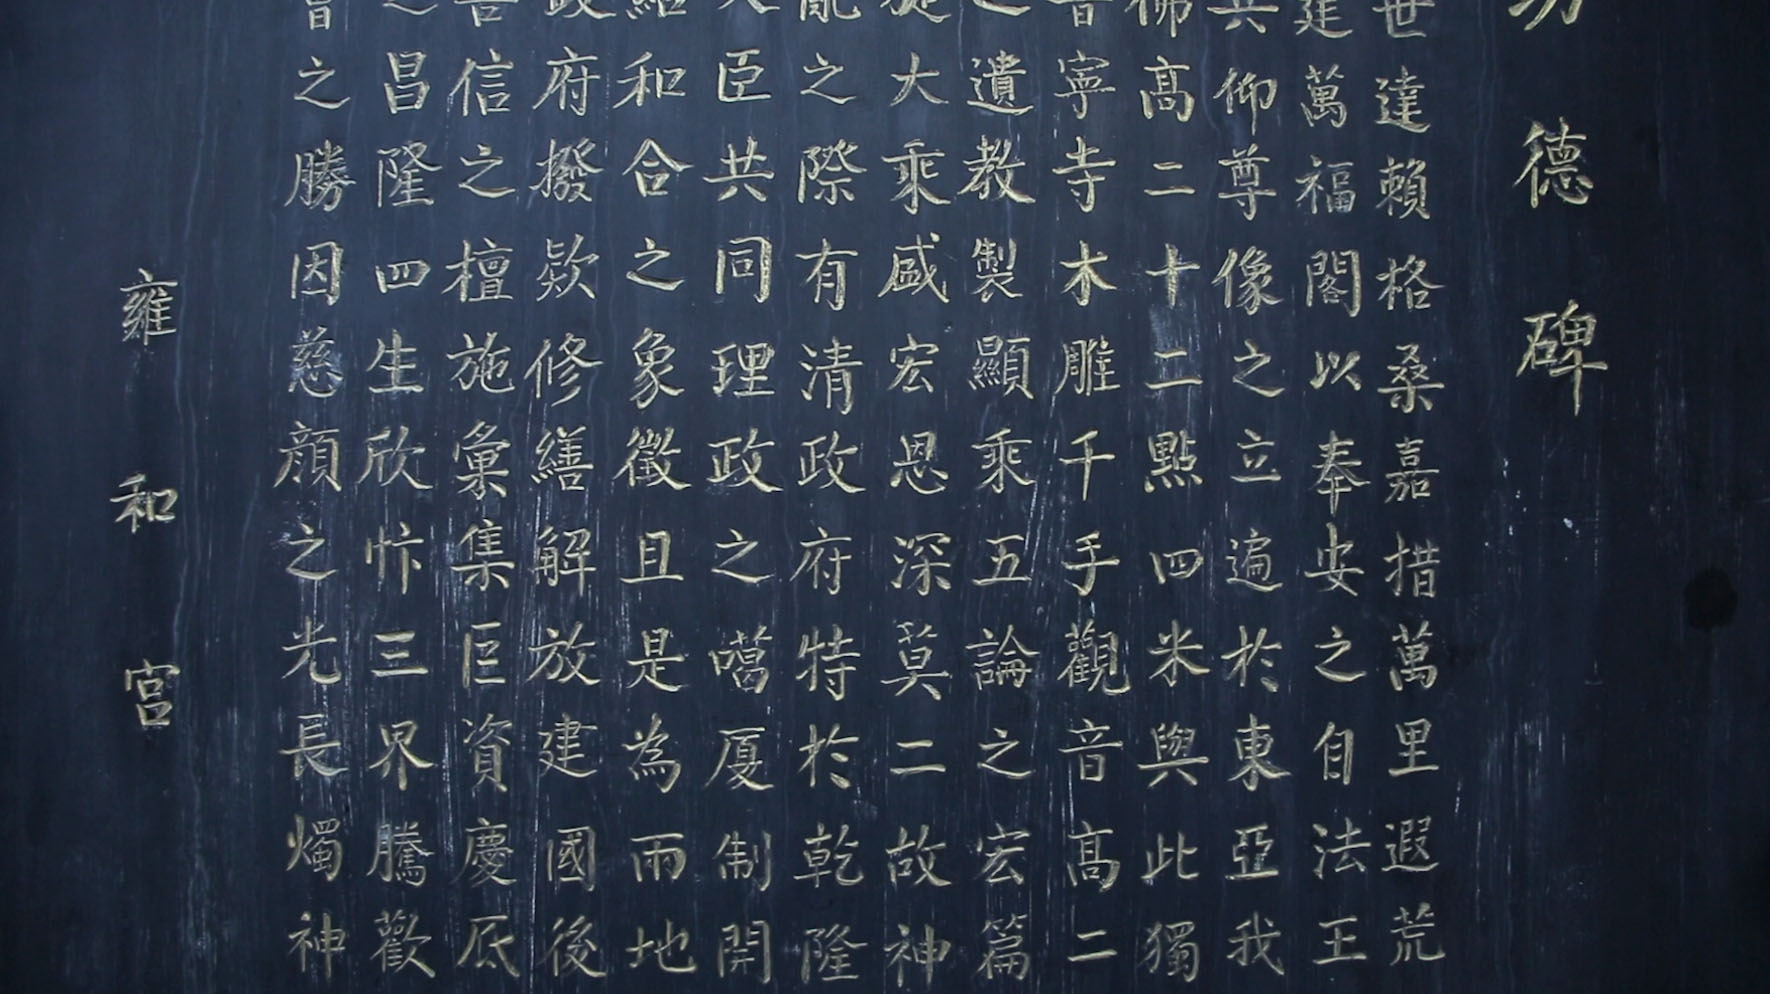 德碑
世達賴格桑嘉措萬里遐荒
建萬福閣以奉安之自法王
共仰尊像之立遍於東亞我
佛高二十二點四米與此獨
音寧寺木雕千手觀音高二
之遺教製顯乘五論之宏篇
大乘盛宏恩深莫二故神
亂之際有清政府特於乾隆
大臣共同理政之噶厦制開
紹和合之象徵且是為而地
政府撥款修繕解放建國後
善信之檀施彙集巨資慶厎
之昌隆四生欣忭三界騰歡
之勝因慈顔之光長燭神
雍和宮